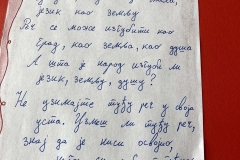 језик као земљу
Реч се може изгубити као
град, као земља, као душа
А шта је народ изгуби ли
језик, земљу, душу?
Не узимајте туђу реч у своја
уста. Узмеш ли туђу реч,
знај да је ниси освојио,